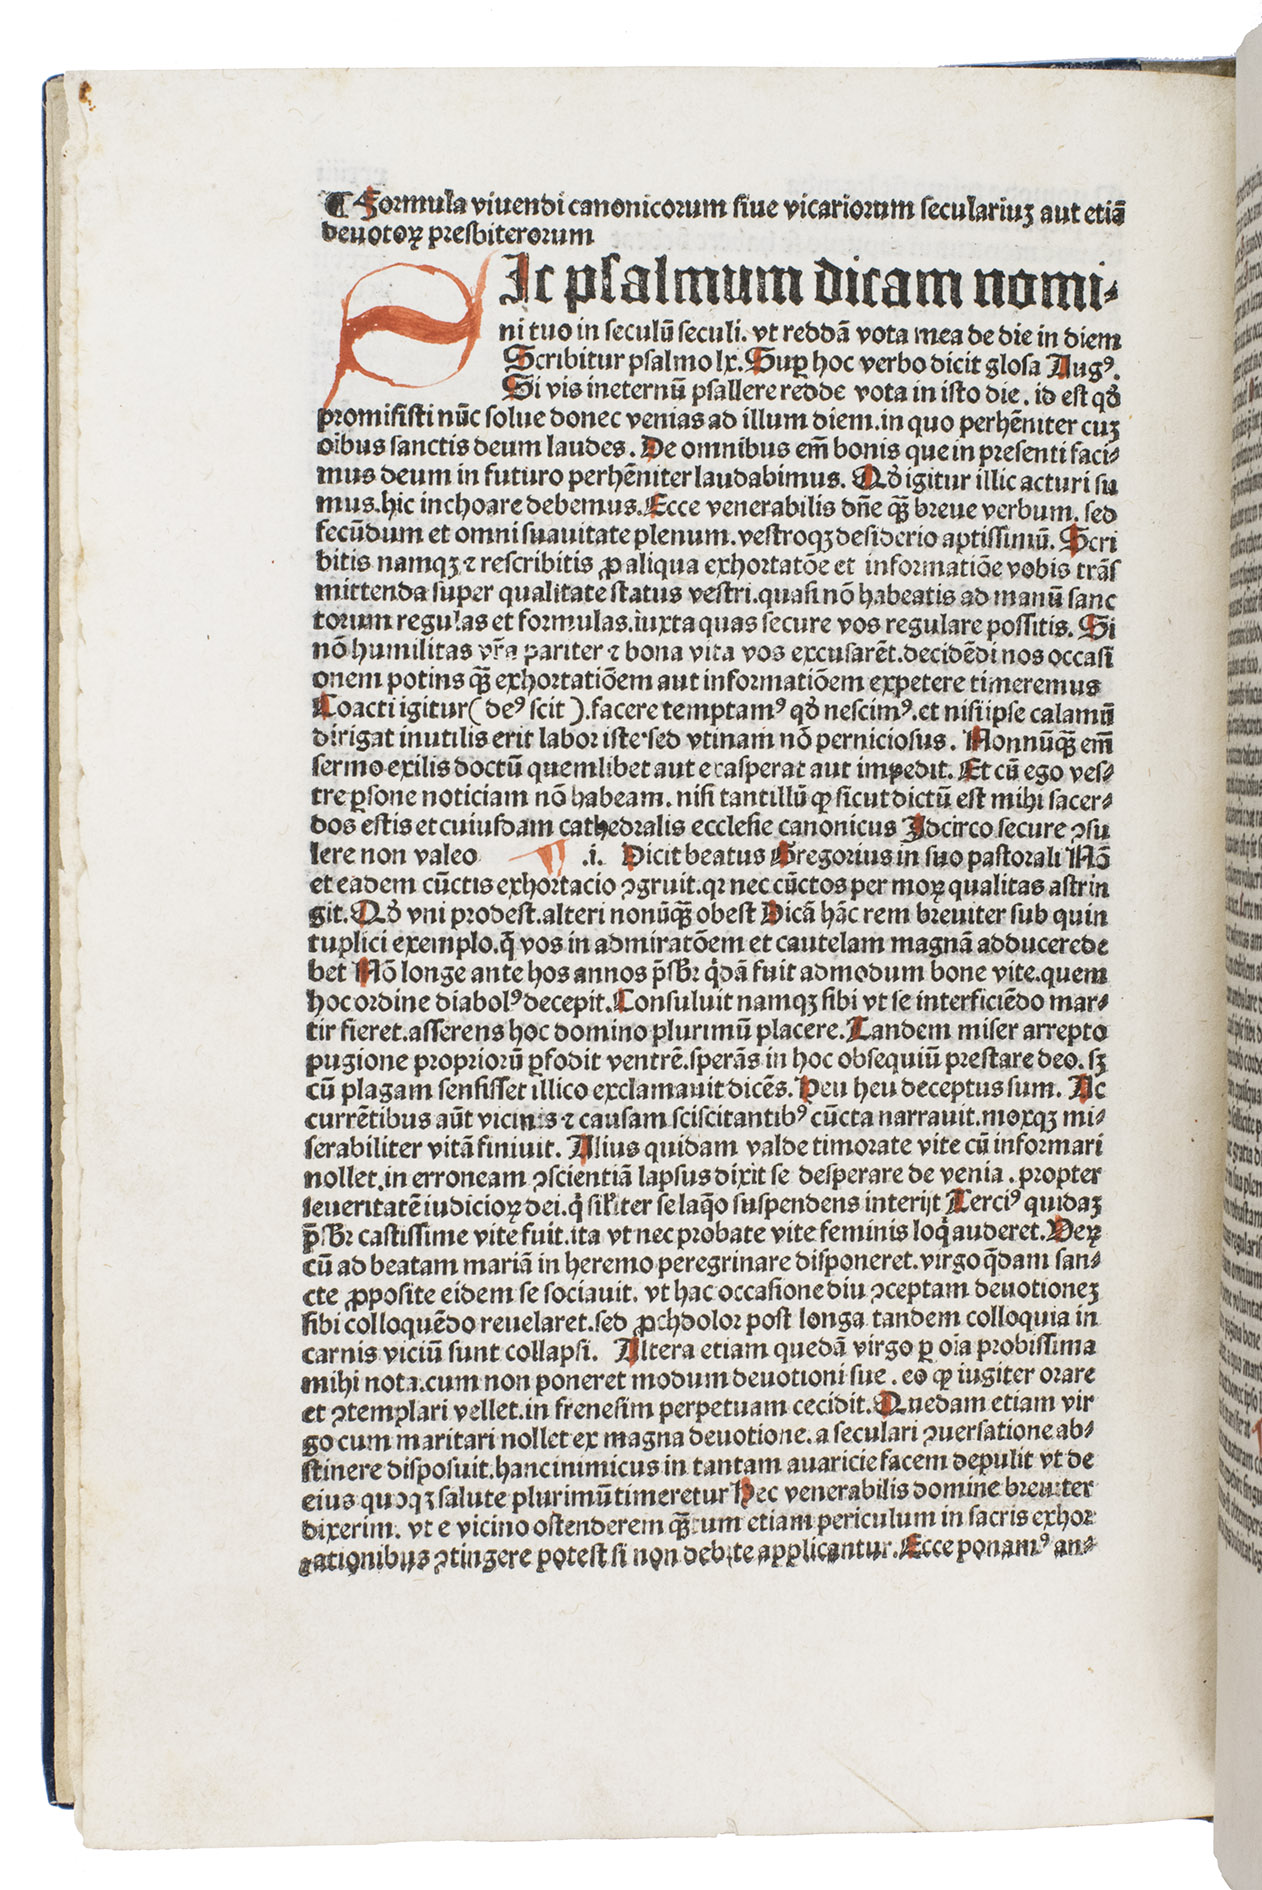 ¶ Formula viuendi canonicorum siue vicariorum seculariuʒ aut etiā
deuotoꝝ presbiterorum
SIc psalmum dicam nomi-
ni tuo in seculū seculi. vt reddā vota mea de die in diem
Scribitur psalmo lx. Suꝑ hoc verbo dicit glosa Augꝰ.
Si vis ineternū psallere redde vota in isto die. id est qð
promisisti nūc solue donec venias ad illum diem. in quo perhēniter cuʒ
oībus sanctis deum laudes. De omnibus em̄ bonis que in presenti faci-
mus deum in futuro perhēniter laudabimus. Qð igitur illic acturi su
mus. hic inchoare debemus. Ecce venerabilis dn̄e qꝫ̄ breue verbum. sed
fecūdum et omni suauitate plenum. vestroqʒ desiderio aptissimū. Scri
bitis namqʒ ⁊ rescribitis ꝓ aliqua exhortatōe et informatiōe vobis trās
mittenda super qualitate status vestri. quasi nō habeatis ad manū sanc
torum regulas et formulas. iuxta quas secure vos regulare possitis. Si
nō humilitas vr̄a pariter ⁊ bona vita vos excusarēt. decidēdi nos occasi
onem potius qꝫ̄ exhortatiōem aut informatiōem expetere timeremus
Coacti igitur ( deꝰ scit ). facere temptamꝰ qð nescimꝰ. et nisi ipse calamū
dirigat inutilis erit labor iste. sed vtinam nō perniciosus. Nonnūqꝫ̄ em̄
sermo exilis doctū quemlibet aut exasperat aut impedit. Et cū ego ves-
tre ꝑsone noticiam nō habeam. nisi tantillū ꝙ sicut dictū est mihi sacer-
dos estis et cuiusdam cathedralis ecclesie canonicus Idcirco secure ꝯsu
lere non valeo ¶ .i. Dicit beatus Gregorius in suo pastorali Nō
et eadem cūctis exhortacio ꝯgruit. qꝛ nec cūctos per moꝝ qualitas astrin
git. Qð vni prodest. alteri nonūqꝫ̄ obest Dicā hāc rem breuiter sub quin
tuplici exemplo. q̄ vos in admiratōem et cautelam magnā adducere de
bet Nō longe ante hos annos p̄sbr̄ qͥdā fuit admodum bone vite. quem
hoc ordine diabolꝰ decepit. Consuluit namqʒ sibi vt se interficiēdo mar-
tir fieret. asserens hoc domino plurimū placere. Tandem miser arrepto
pugione propriorū ꝑfodit ventrē. sperās in hoc obsequiū prestare deo. sʒ
cū plagam sensisset illico exclamauit dicēs. Heu heu deceptus sum. Ac
currētibus aūt vicinis ⁊ causam sciscitantibꝰ cūcta narrauit. moxqʒ mi-
serabiliter vitā finiuit. Alius quidam valde timorate vite cū informari
nollet. in erroneam ꝯscientiā lapsus dixit se desperare de venia. propter
seueritatē iudicioꝝ dei. qͥ silr̄iter se laqͦo suspendens interijt Terciꝰ quidaʒ
p̄sbr̄ castissime vite fuit. ita vt nec probate vite feminis loqͥ auderet. Veꝝ
cū ad beatam mariā in heremo peregrinare disponeret. virgo qͣdam san-
cte ꝓposite eidem se sociauit. vt hac occasione diu ꝯceptam deuotioneʒ
sibi colloquēdo reuelaret. sed ꝓchdolor post longa tandem colloquia in
carnis viciū sunt collapsi. Altera etiam quedā virgo ꝑ oīa probissima
mihi nota. cum non poneret modum deuotioni sue. eo ꝙ iugiter orare
et ꝯtemplari vellet. in frenesim perpetuam cecidit. Quedam etiam vir
go cum maritari nollet ex magna deuotione. a seculari ꝯuersatione ab-
stinere disposuit. hanc inimicus in tantam auaricie facem depulit vt de
eius quoqʒ salute plurimū timeretur Hec venerabilis domine breuiter
dixerim. vt e vicino ostenderem qꝫ̄tum etiam periculum in sacris exhor
tationibus ꝯtingere potest si non debite applicantur. Ecce ponamꝰ an-